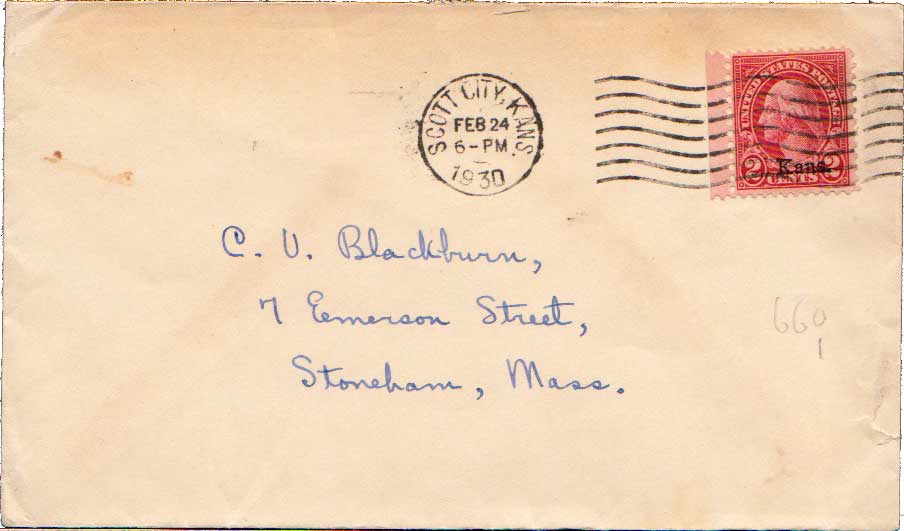 SCOTT CITY, KANS.
FEB 24
6-PM
1930
UNITED STATES POSTAGE
2 CENTS 2
Kans.
C. V. Blackburn,
7 Eemerson Street,
Stoneham, Mass.
660
1